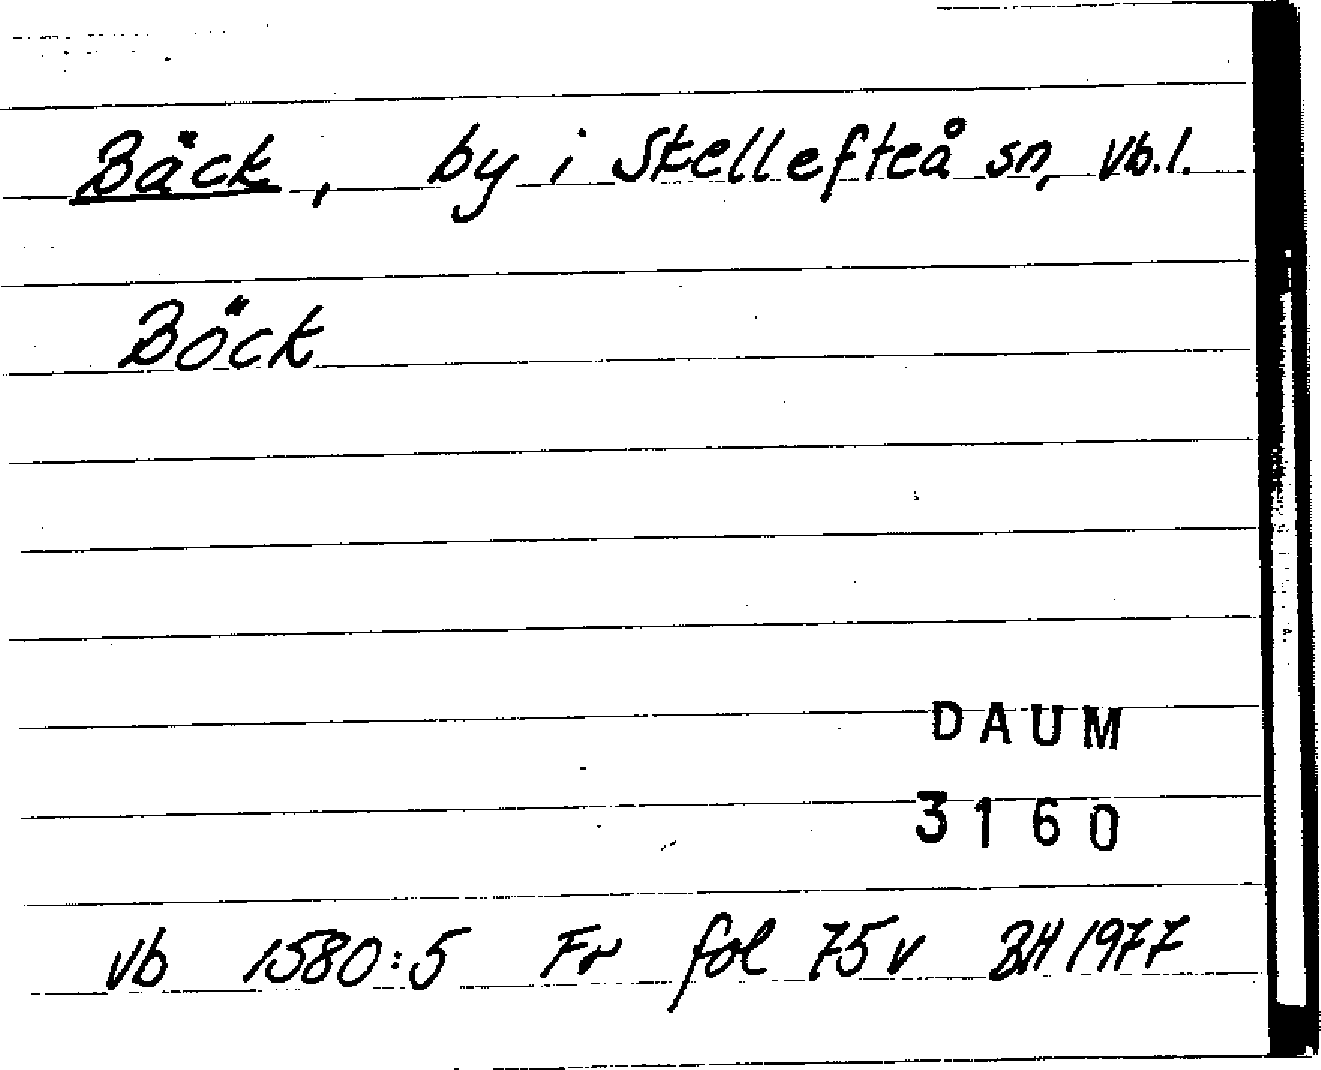 Bäck, by i Skellefteå sn, Vb.l.
Böck
DAUM
3160
Vb 1580:5 Fr fol 75v BH 1977